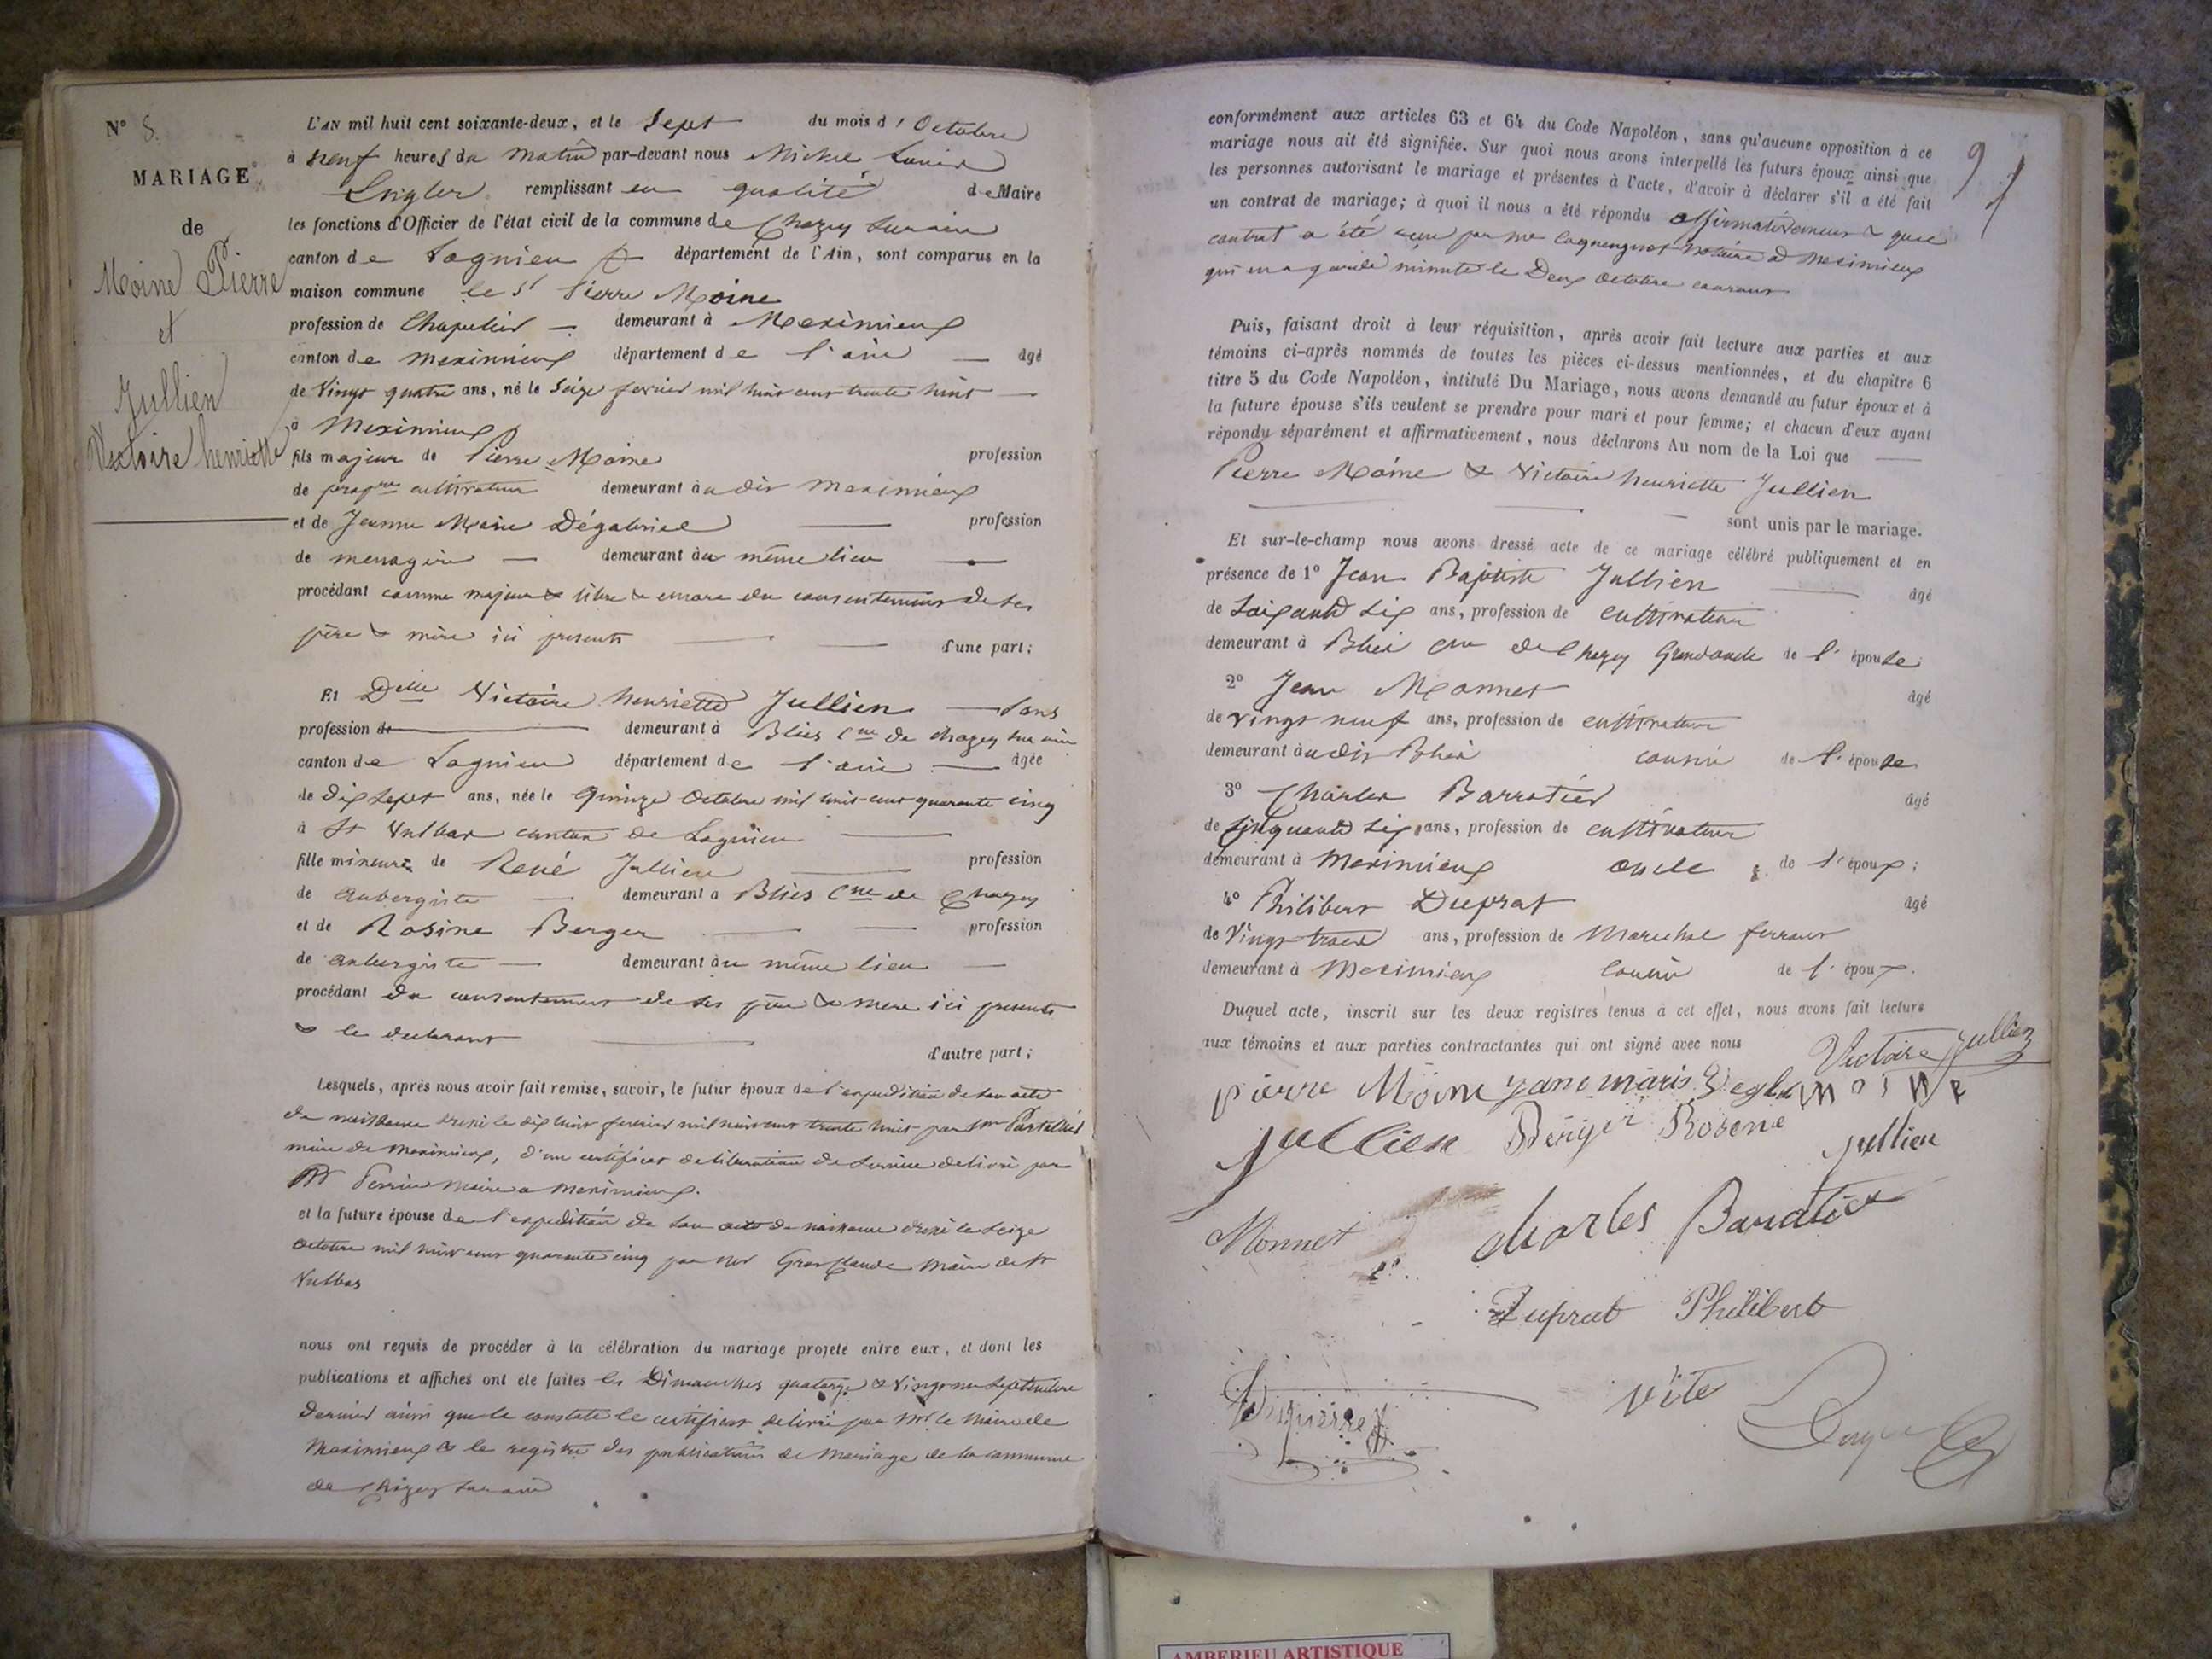 N° 8.
MARIAGE
de
Moine Pierre
et
Jullien
Victoire henriette
L'AN mil huit cent soixante-deux, et le Sept du mois d'Octobre
à neuf heures du matin par-devant nous Michel
remplissant en qualité de Maire
les fonctions d'Officier de l'état civil de la commune de Chazey sur ain
canton de Lagnieu département de l'Ain, sont comparus en la
maison commune le Sr Pierre Moine
profession de Chapelier demeurant à Meximieux
canton de meximieux département de l'ain âgé
de Vingt quatre ans, né le Seize fevrier mil huit cent trente huit
à Meximieux
fils majeur de Pierre Moine profession
de propre cultivateur demeurant audit meximieux
et de Jeanne Marie Dégabriel profession
de menagère demeurant au même lieu
procédant comme majeur & libre & encore du consentement de ses
père & mère ici presents d'une part;
Et Delle Victoire henriette Jullien sans
profession de demeurant à Blies Cne de chazey sur ain
canton de Lagnieu département de l'ain âgée
de dix sept ans, née le Quinze Octobre mil huit cent quarante cinq
à St Vulbas canton de Lagnieu
fille mineure de René Jullien profession
de aubergiste demeurant à Blies Cne de Chazey
et de Rosine Berger profession
de aubergiste demeurant au même lieu
procédant du consentement de ses père & mere ici presents
& le declarant
d'autre part;
Lesquels, après nous avoir fait remise, savoir, le futur époux de l'expedition de son acte
de naissance dressé le dix huit fevrier mil huit cent trente huit par Mr
maire de meximieux, d'un certificat de liberation de service delivré par
Mr Perrin Maire a meximieux.
et la future épouse de l'expedition de son acte de naissance dressé le seize
octobre mil huit cent quarante cinq par Mr Grosclaude Maire de St
Vulbas
nous ont requis de procéder à la célébration du mariage projeté entre eux, et dont les
publications et affiches ont été faites les Dimanches quatorze & Vingt un Septembre
dernier ainsi que le constate le certificat delivré par Mr le Maire de
Meximieux & le registre des publications de Mariage de la commune
de Chazey sur ain
conformément aux articles 63 et 64 du Code Napoléon, sans qu'aucune opposition à ce
mariage nous ait été signifiée. Sur quoi nous avons interpellé les futurs époux ainsi que
les personnes autorisant le mariage et présentes à l'acte, d'avoir à déclarer s'il a été fait
un contrat de mariage; à quoi il nous a été répondu affirmativement & que
contrat a été reçu par me notaire à Meximieux
qui en a gardé minute le Deux Octobre courant
9
Puis, faisant droit à leur réquisition, après avoir fait lecture aux parties et aux
témoins ci-après nommés de toutes les pièces ci-dessus mentionnées, et du chapitre 6
titre 5 du Code Napoléon, intitulé Du Mariage, nous avons demandé au futur époux et à
la future épouse s'ils veulent se prendre pour mari et pour femme; et chacun d'eux ayant
répondu séparément et affirmativement, nous déclarons Au nom de la Loi que
Pierre Moine & Victoire henriette Jullien
sont unis par le mariage.
Et sur-le-champ nous avons dressé acte de ce mariage célébré publiquement et en
présence de 1° Jean Baptiste Jullien âgé
de Soixante Six ans, profession de cultivateur
demeurant à Blies cne de Chazey Grand oncle de l'épouse
2° Jean Monnet âgé
de vingt neuf ans, profession de cultivateur
demeurant audit Blies cousin de l'épouse
3° Charles Barratier âgé
de Cinquante Six ans, profession de cultivateur
demeurant à Meximieux oncle de l'époux;
4° Philibert Duprat âgé
de Vingt trois ans, profession de Marechal ferrant
demeurant à Meximieux Cousin de l'époux.
Duquel acte, inscrit sur les deux registres tenus à cet effet, nous avons fait lecture
aux témoins et aux parties contractantes qui ont signé avec nous
Victoire Jullien
pierre Moine jane marie MOINE
Jullien Berger Rosine Jullien
Monnet Charles Baratier
Duprat Philibert
Dupierre vite
AMBERIEU ARTISTIQUE